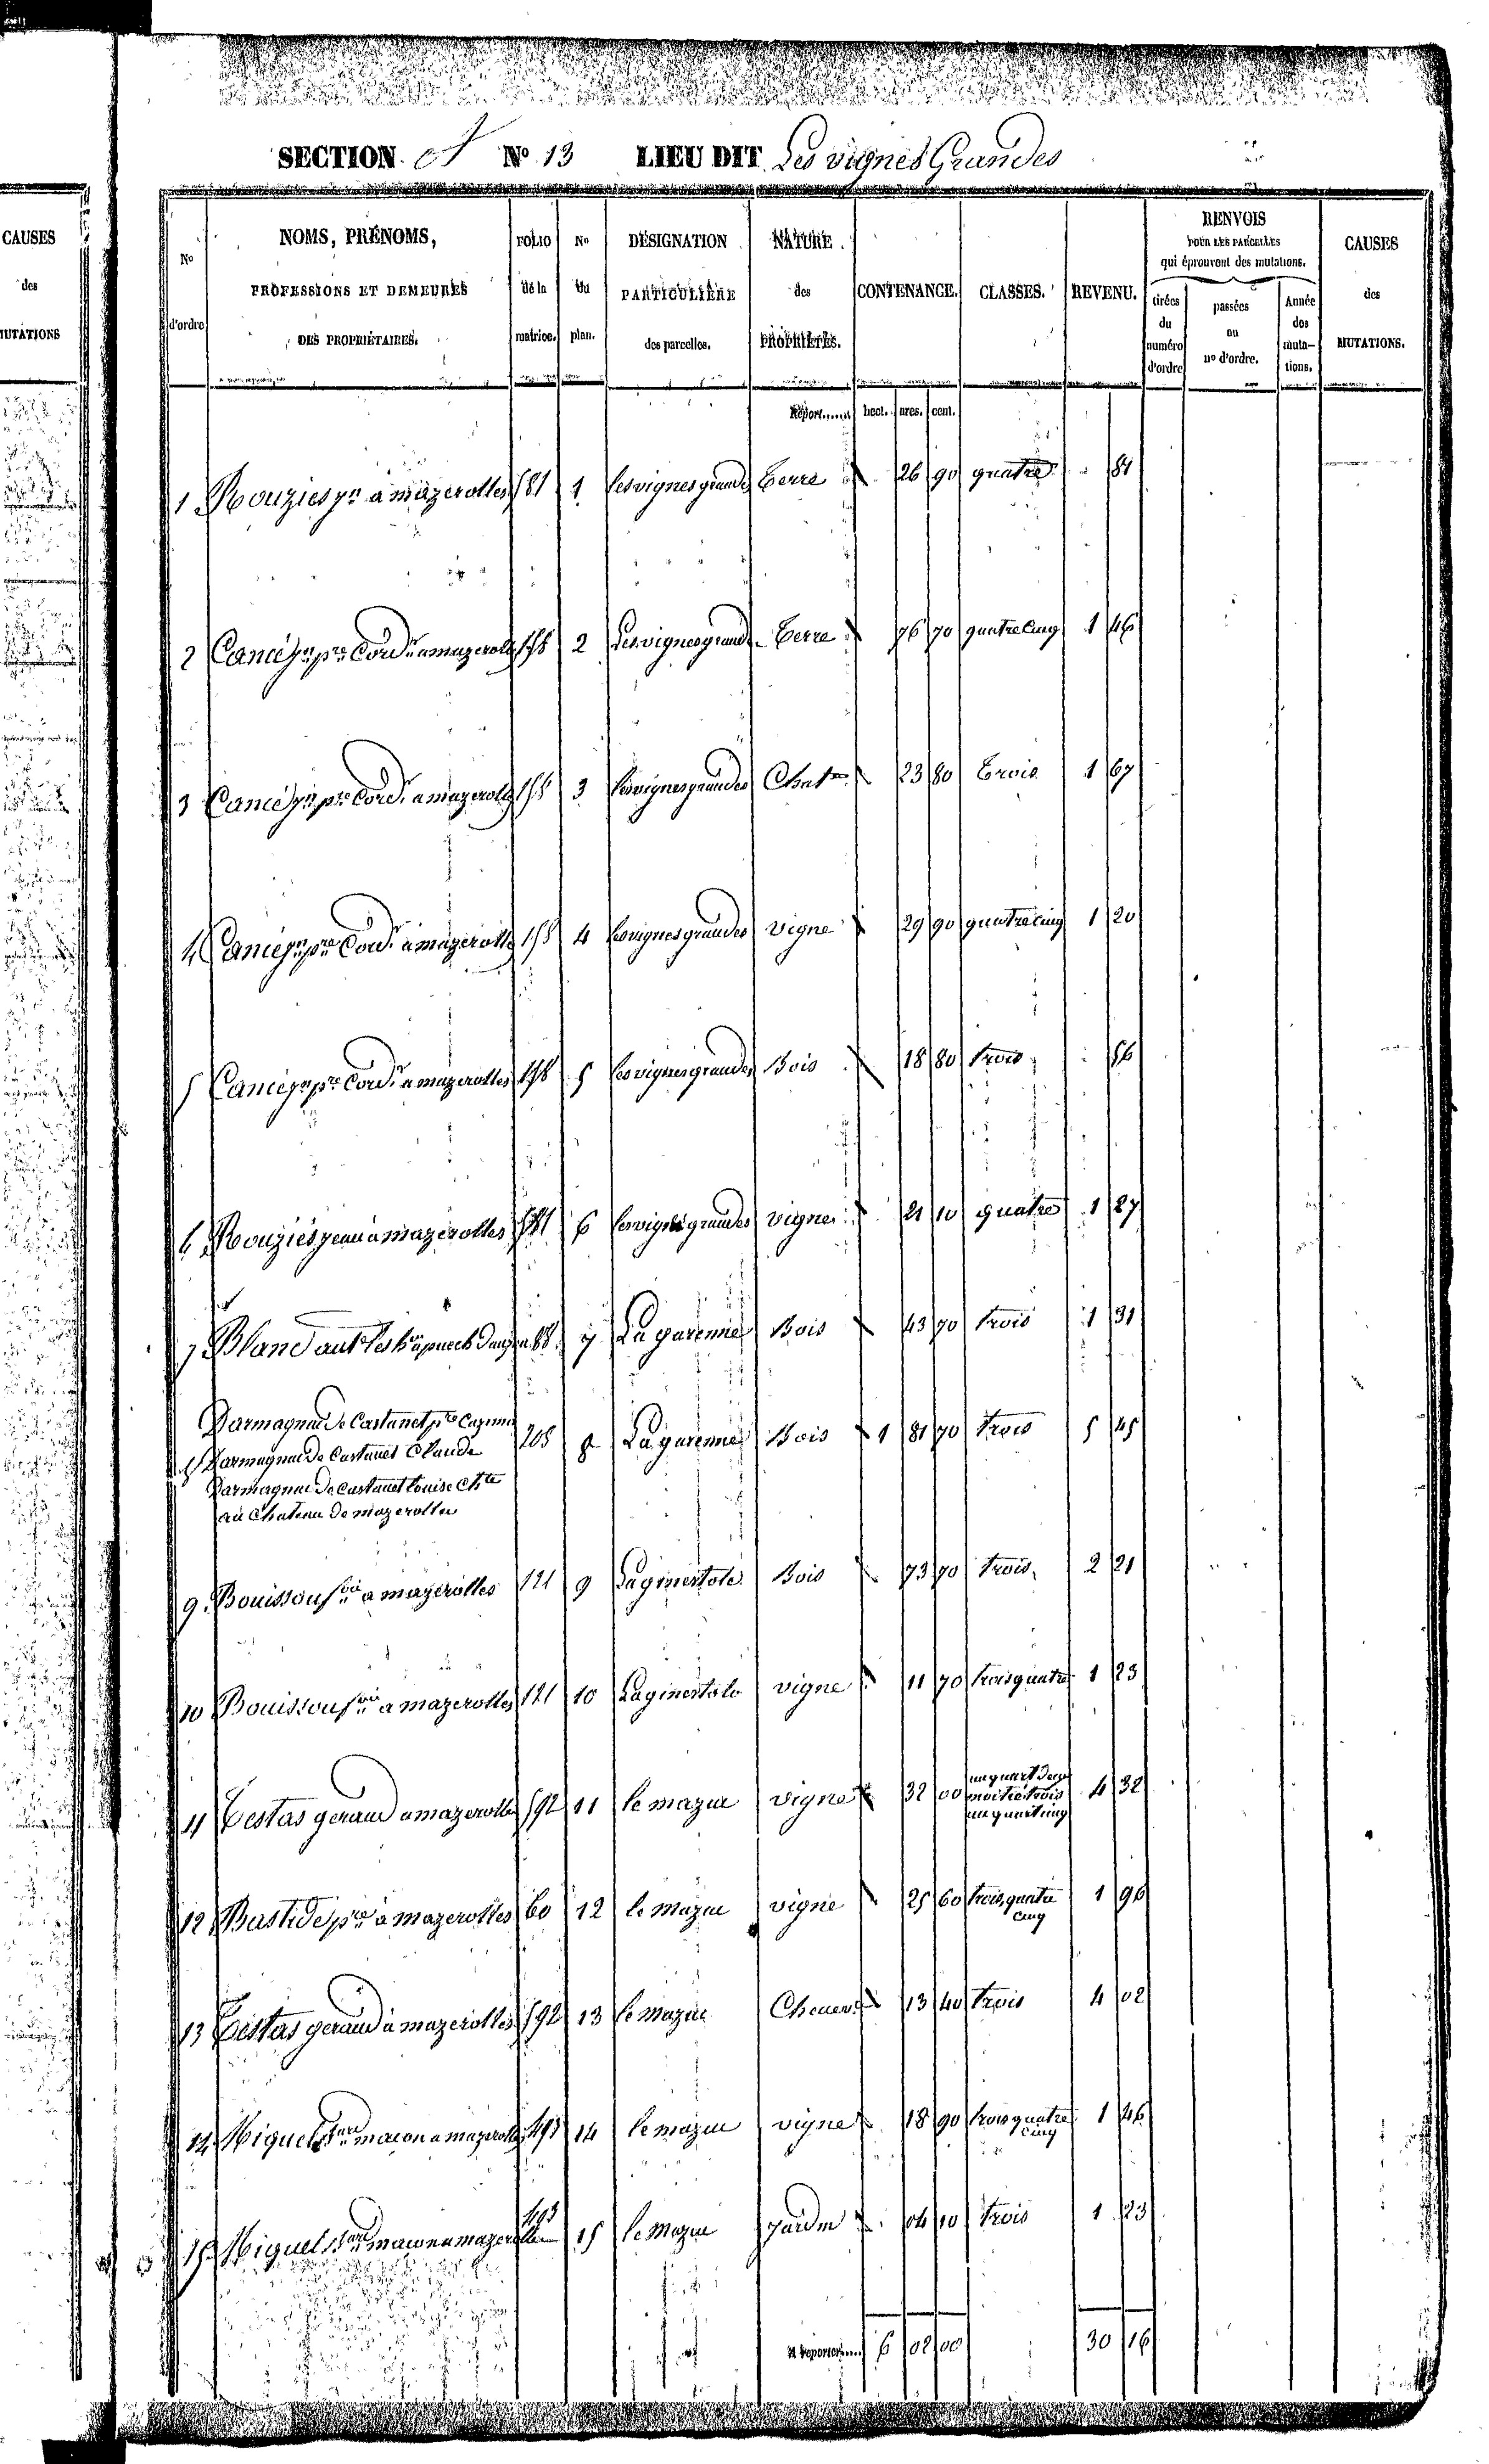 CAUSES
des
MUTATIONS
SECTION A No 13 LIEU DIT Les vignes Grandes
No d'ordre
NOMS, PRÉNOMS, PROFESSIONS ET DEMEURES DES PROPRIÉTAIRES.
FOLIO de la matrice.
No du plan.
DÉSIGNATION PARTICULIÈRE des parcelles.
NATURE des PROPRIÉTÉS.
CONTENANCE.
CLASSES.
REVENU.
RENVOIS POUR LES PARCELLES qui éprouvent des mutations.
tirées du numéro d'ordre
passées au no d'ordre.
Année des muta-tions.
CAUSES des MUTATIONS.
Report...... hect. ares. cent.
1 Rouzies a mazerolles 581 1 les vignes grandes Terre 26 90 quatre 81
2 a mazerolles 2 les vignes grandes Terre 76 70 quatre cinq 1 46
3 a mazerolles 3 les vignes grandes Chat 23 80 Trois 1 67
4 a mazerolles 4 les vignes grandes vigne 29 90 quatre cinq 1 20
5 a mazerolles 5 les vignes grandes Bois 18 80 trois 56
6 Rouziés jean a mazerolles 581 6 les vignes grandes vigne 21 10 quatre 1 27
7 Blanc 7 La garenne Bois 43 70 trois 1 31
Darmagnac de Castanet
8 Darmagnac de Castanet Claude 205 8 La garenne Bois 1 81 70 trois 5 45
Darmagnac de Castanet Louise
au Chateau de mazerolles
9 Bouissou a mazerolles 121 9 Laginestole Bois 73 70 trois 2 21
10 Bouissou a mazerolles 121 10 Laginestole vigne 11 70 trois quatre 1 23
un quart deux
11 Testas geraud a mazerolles 592 11 le mazuc vigne 32 00 moitié trois 4 32
un quart cinq
12 Bastide pre a mazerolles 60 12 le mazuc vigne 25 60 trois quatre 1 96
cinq
13 Testas geraud a mazerolles 592 13 le mazuc Chenev 13 40 trois 4 02
14 Miquel macon a mazerolles 493 14 le mazuc vigne 18 90 trois quatre 1 46
cinq
15 Miquel macon a mazerolles 493 15 le mazuc jardin 04 10 trois 1 23
A reporter..... 6 02 00 30 16